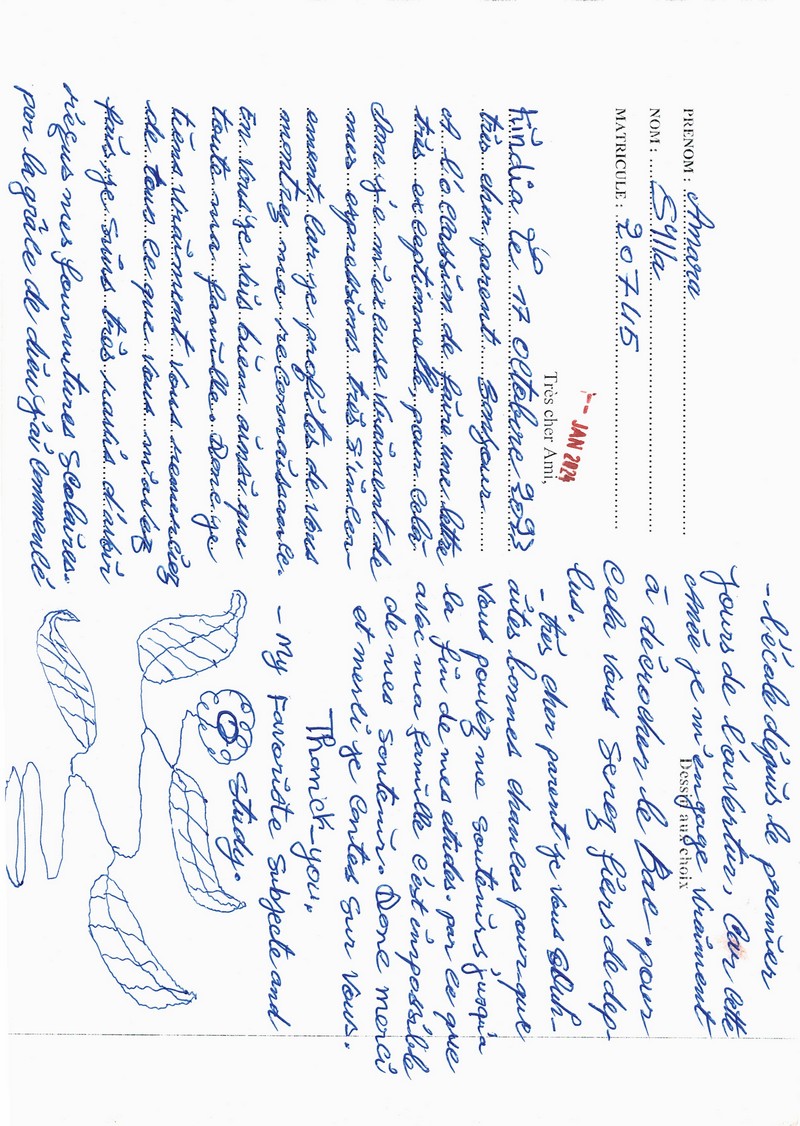 PRENOM : Amara
NOM : Sylla
MATRICULE : 207415
7 - JAN 2024
Très cher Ami,
Kindia le 17 Octobre 2023
très cher parent Bonjour
A l'occassion de faire une lettre
très exceptionnelle, pour cela
Donc je m'excuse vraiment de
mes expressions très s'incer-
ement, car je profites de vous
montrez ma reconnaissance.
En vous je vais bien ainsi que
toute ma famille. Donc je
tiens vraiment vous remerciez
de tous ce que vous m'avez
fais, je suis très ravis d'avoir
réçus mes fournitures Scolaires.
par la grâce de dieu j'ai commencé
- l'école dépuis le premier
jours de l'ouvertur, Car cette
Année je m'engage vraiment
Dessin aux choix
à décrocher le Bac - pour
Cela vous Serez fiers de dep-
lus.
- très cher parent je vous souh-
aites bonnes chances pour que
vous pouvez me soutenirs jusqu'à
la fin de mes etudes. par ce que
avec ma famille c'est impossible
de mes soutenir. Donc merci
et merci je contes sur vous.
Thanck-you.
- My Favoriste Subjecte and
Study.